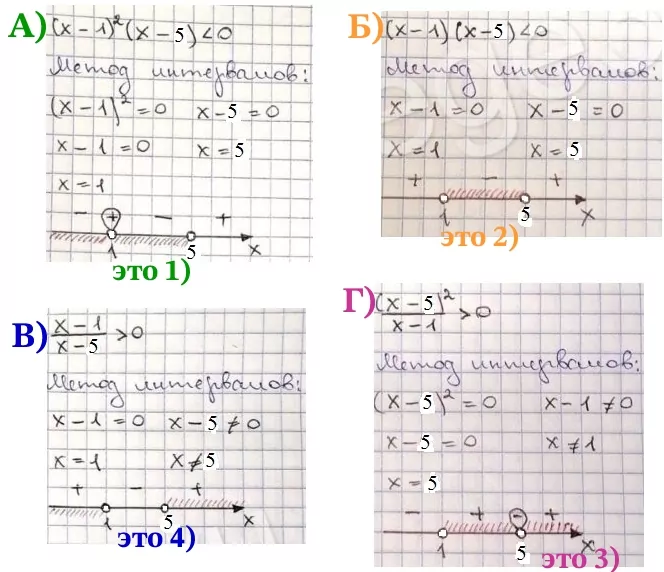 А) (x − 1)² (x − 5) < 0
Метод интервалов:
(x − 1)² = 0 x − 5 = 0
x − 1 = 0 x = 5
x = 1
− + − +
1 5 x
это 1)
Б) (x − 1) (x − 5) < 0
Метод интервалов:
x − 1 = 0 x − 5 = 0
x = 1 x = 5
+ − +
1 5 x
это 2)
В) x − 1 / x − 5 > 0
Метод интервалов:
x − 1 = 0 x − 5 ≠ 0
x = 1 x ≠ 5
+ − +
1 5 x
это 4)
Г) (x − 5)² / x − 1 > 0
Метод интервалов:
(x − 5)² = 0 x − 1 ≠ 0
x − 5 = 0 x ≠ 1
x = 5
− + − +
1 5 x
это 3)